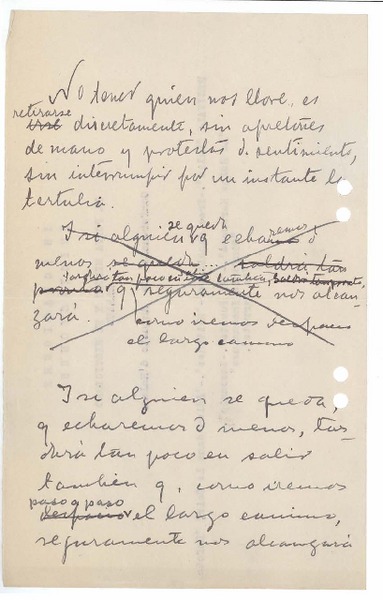 No tener quien nos llore, es
retirarse
irse discretamente, sin apretones
de mano y protestas d. sentimiento,
sin interrumpir por un instante la
tertulia.
se queda
I si alguien q echaramos d
menos se queda... saldria tan
pronto q seguramente nos alcan-
zará.
como iremos despacio
el largo camino
I si alguien se queda,
q echaremos d menos, tar-
dará tan poco en salir
tambien q, como iremos
paso a paso
despacio el largo camino,
seguramente nos alcanzará